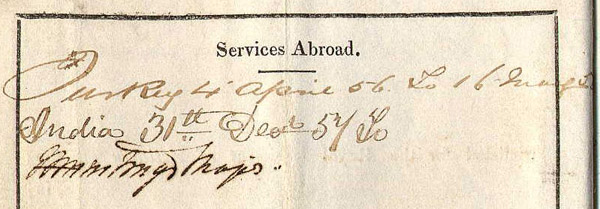 Services Abroad.
Turkey 4 April 56. To 16 May
India 31st Decr 57 To
Major.